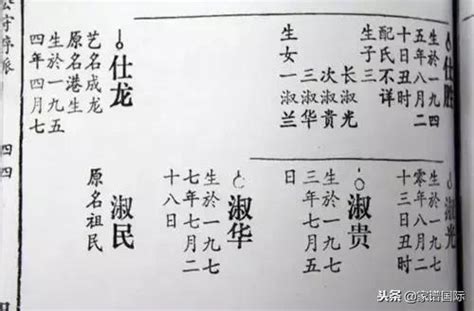 仕胜
生於一九四
五年八月二
十日丑时
配氏不详
生子三
长淑光
次淑贵
三淑华
生女一淑兰
仕龙
艺名成龙
原名港生
生於一九五
四年四月七
淑光
生於一九七
零年八月二
十三日丑时
淑贵
生於一九七
三年七月五
日
淑华
生於一九七
七年七月二
十八日
淑民
原名祖民
守序派
四四
头条 @家谱国际